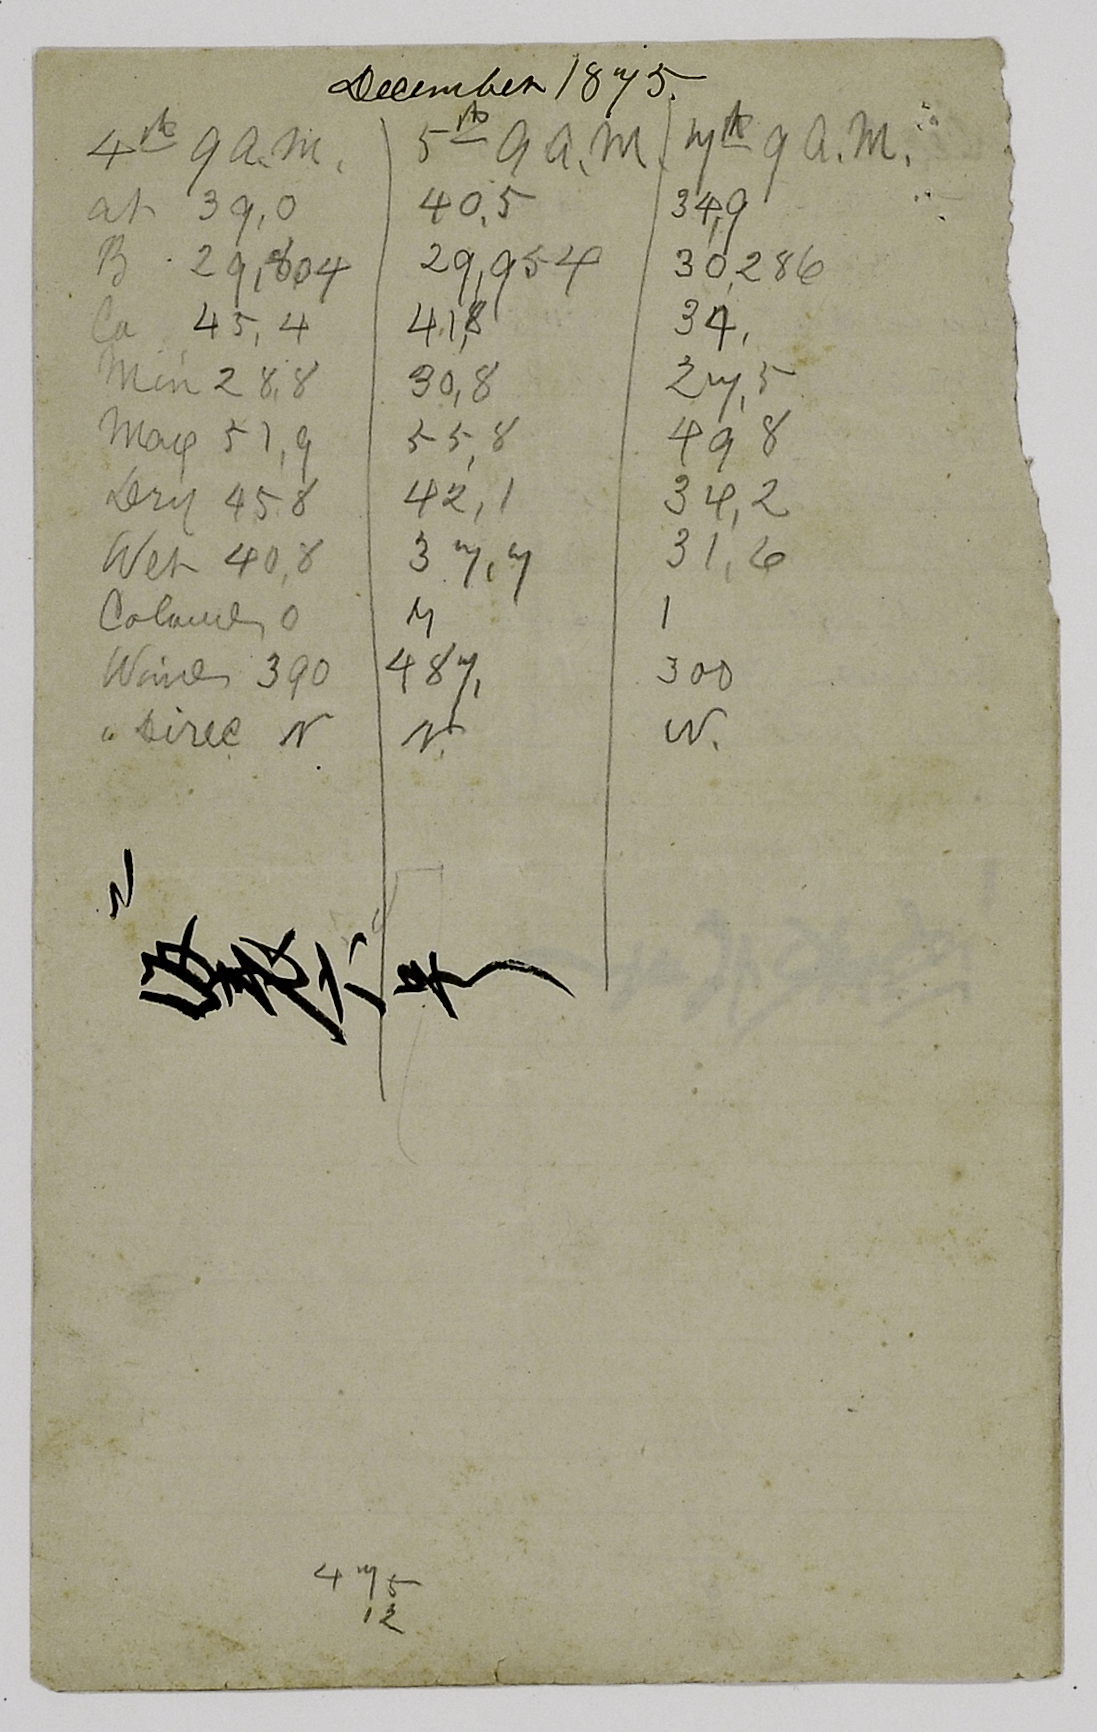 December 1875.
4th 9 a.m. 5th 9 a.m. 7th 9 a.m.
at 39,0 40,5 34,9
B 29,804 29,954 30,286
Ca 45,4 41,8 34,
Min 28,8 30,8 27,5
Max 51,9 55,8 49 8
Dry 45 8 42,1 34,2
Wet 40,8 37,7 31,6
0 7 1
Wind 390 487, 300
" Direc N N. W.
475
12